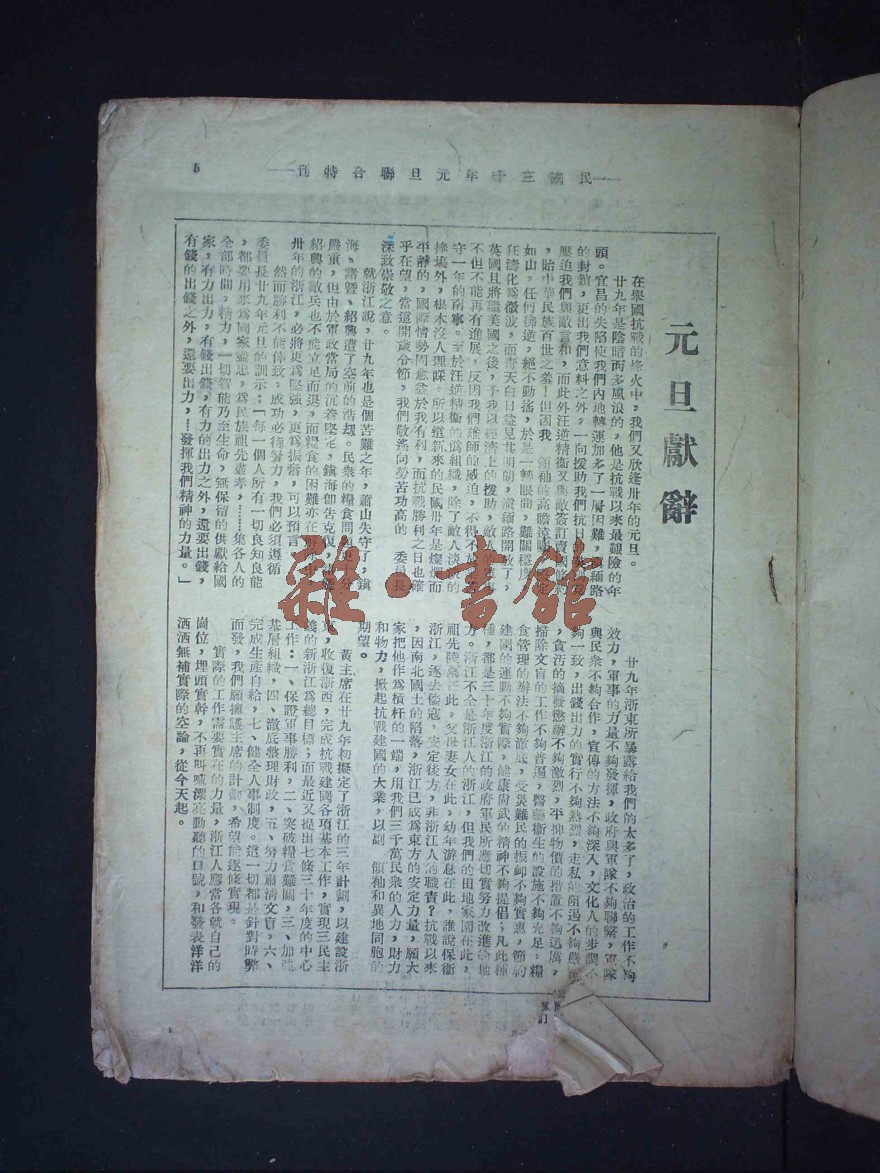 民國三十年元旦聯合特刊
5
元旦獻辭
在舉國抗戰的烽火中，我們又欣逢卅年的元旦。
廿九年是陰暗而多風浪的，他是抗戰以來最艱險的年
頭。宜昌的失陷使我們內地轉運加多了一層困難，緬路
的封鎖，更出我們意料之外，一向援助我們抗日的
壓迫我們與敵言和，而此外汪逆精衞又與敵簽訂賣國條約
，貽中華民族百世之羞！但因我　領袖的高瞻遠矚，
如山，任何拂逆，絕不動搖，於是一轉眼間，難關穩度，
狂濤化爲微波，而靑天白日益見其明朗，滇緬路開放了，
英國且將繼美國之後，予我以經濟上的援助，敵
不但不能再有進展，反因我們雄師的威迫，不得不
守一年的南寧。至於汪逆精衞的僞組織，除了敵人淡淡的
捧塲外，根本沒人理睬。所以這新來的民國卅年是燦爛而
平靜的，國際情勢固愈益於我有利，而抗戰勝利之日也確
乎在望，當這開歲令節，我們敬遙向勞苦功高的　委員長
深致崇敬之意。
就浙江說，廿九年也是個苦難之年，蕭山失守了，鎭
海、諸暨、紹興遭了空前的浩刼。民衆的糧食問題也十分
嚴重，但由於軍政當局的沉着堅定，鎭海卽告克復，諸暨
紹興的敵兵也不能立足而退，而糧食的困難亦在
卅年的浙江，必將更爲堅强，更爲振奮，可以預言。
然而勝利不能倖致，成功必待努力，我們必須遵循
委員長廿九年元旦的訓示：「每一個人所有一切良知良能
，都要用來爲國家盡忠，爲民族祖先盡孝，……集各人的
全部時間，精力，一切智能乃至生命，無保留的供獻給國
家，有力出力，有錢出錢，有力的出力之外，還要出錢，
有錢的出錢之外，還要出力，……發揮我們精神的力量。」
廿九年浙東所暴露給我們的太多了，政治的工作不夠
效力，軍事的力量不夠發揮，政府與軍隊不夠聯繫，軍隊
與民衆不夠合作，宣傳的方法不夠深入，文化人的步調不
夠一致，出錢出力的實行不夠熱烈，走私的阻遏不夠嚴
，貪汚的摘發懲辦不夠激烈，平抑物價的措置不夠迅厲，
掃除文盲的工作不夠普遍，醫藥衞生的設施不夠充足，糧
食管理的辦法不夠澈底，受災難民的振卹不夠實惠，節約
建國的運動不夠實際，健康尙武的精神不夠提倡；凡此種
種，都是三十年度浙江的政府軍民所應切實努力改進的地
方。浙江不全是浙江人的浙江，但我們的田地家園在此，
祖先陵墓在此，父母妻女在此，幼年游息在此，誰說保衞
浙江，逐去倭寇，安定後方，非浙江人的職責？抗戰以來
，因南北國土的陷落，浙江已成爲東方的安定力量，願大
家把他作爲槓杆的一端，用我們三千萬民衆的人力，財力
和物力，掀起抗戰建國的大業，以副　領袖和異地同胞的
期望。
黃主席在廿九年初擬定了浙江的三年計劃，以建設浙
東，收復浙西，完成抗戰建國各項基本工作，實現三民主
義的新浙江爲總目標；而最近又提出七條三十年度的中心
工作：一、保證軍事勝利，二、突破糧食難關，三、加强
基層組織，四、澈底整理財政，五、努力肅淸文盲，六、
完成生產自給，七、健全人事制度。這一切都是針對時弊
而發，我們願擁護主席的計劃，希望能逐條實現。
實際的工作需要實在的力量，浙江人應當各就自己的
崗位，埋頭實幹，不再叫喊漂亮動聽的口號，和發表洋洋
洒洒無補實際的空論，從今天起。
雜·書館